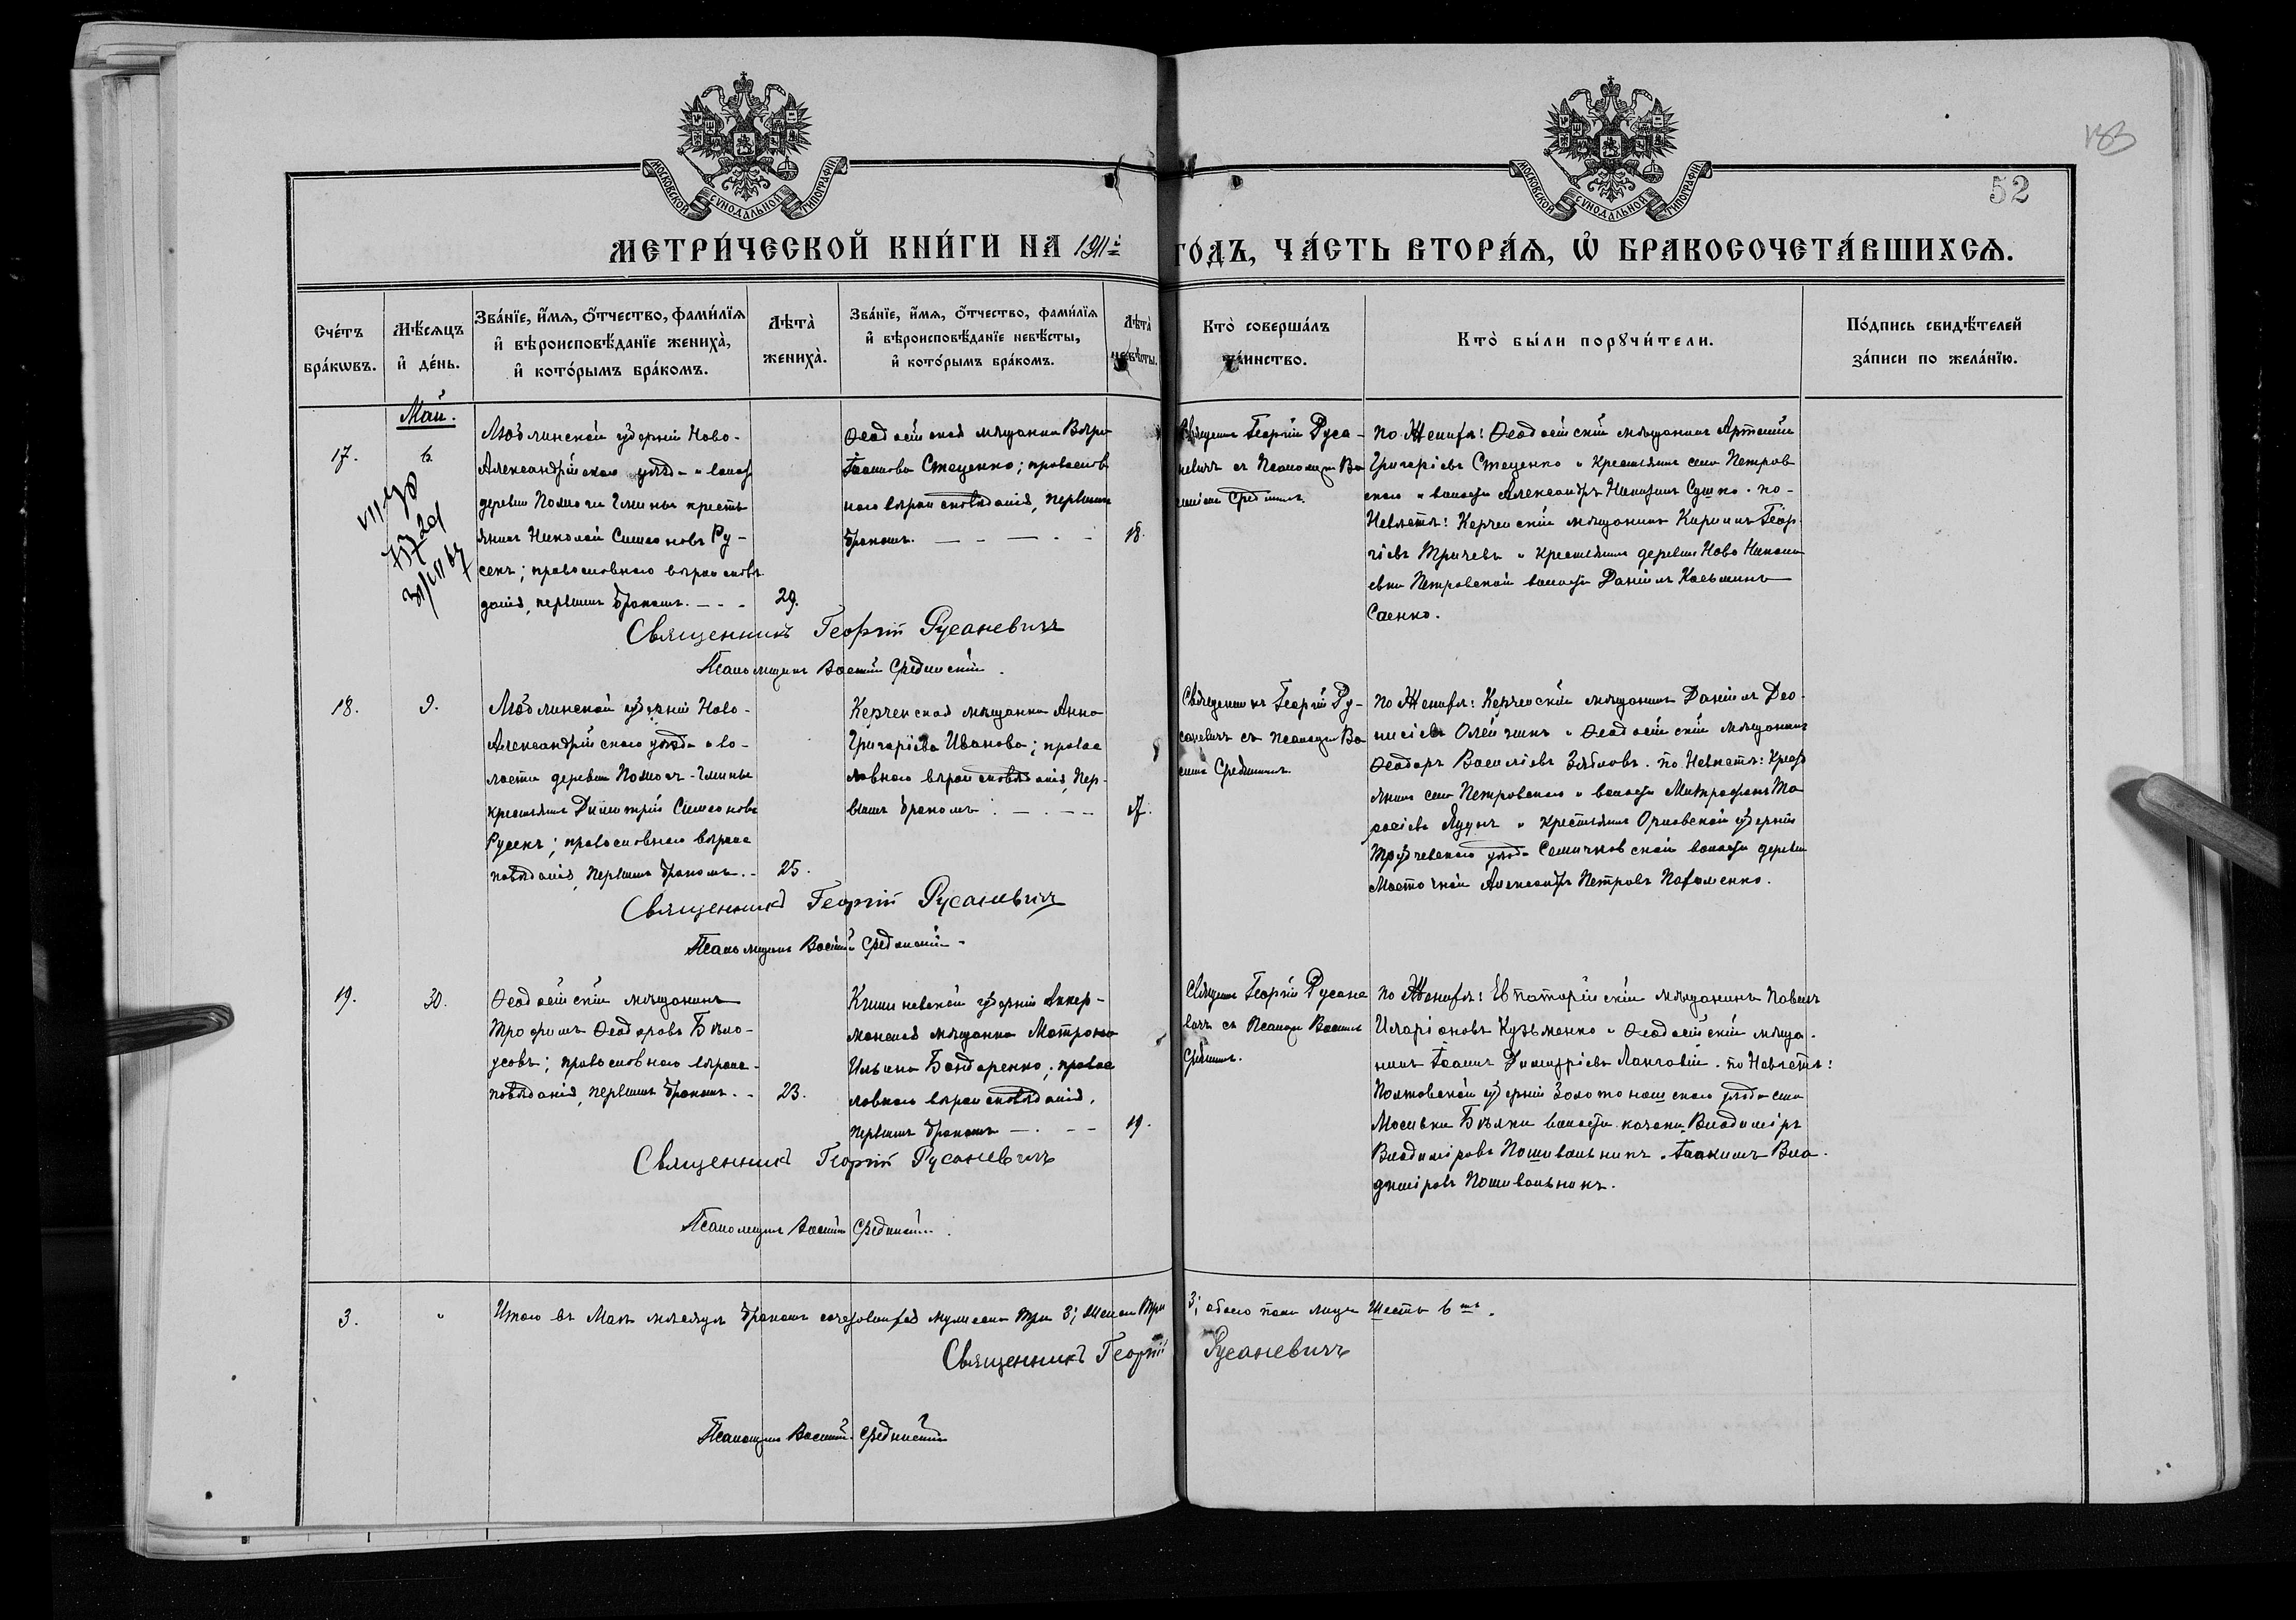 133
52
МОСКОВСКОЙ СѴНОДАЛЬНОЙ ТИПОГРАФІИ
МОСКОВСКОЙ СѴНОДАЛЬНОЙ ТИПОГРАФІИ
МЕТРИ́ЧЕСКОЙ КНИ́ГИ НА 1911й ГО́ДЪ, ЧА́СТЬ ВТОРА́Ѧ, Ѽ БРАКОСОЧЕТА́ВШИХСѦ.
Сче́тъ бра́кѡвъ.
Мѣ́сяцъ и҆ де́нь.
Зва́нїе, и҆́мѧ, ѻ҆́тчество, фами́лїѧ
и҆ вѣроисповѣ́данїе женихà,
и҆ кото́рымъ бра́комъ.
Лѣтà женихà.
Зва́нїе, и҆́мѧ, ѻ҆́тчество, фами́лїѧ
и҆ вѣроисповѣ́данїе невѣ́сты,
и҆ кото́рымъ бра́комъ.
Лѣтà невѣ́сты.
Ктò соверша́лъ
та́инство.
Ктò бы́ли порꙋчи́тели.
По́дпись свидѣ́телей
за́писи по жела́нїю.
Май.
17.
6.
Люблинской губерніи Ново-
Александрійскаго уѣзда и волос
деревни Полмсч Гмины кресть
янинъ Николай Симеоновъ Ру-
секъ; православнаго вѣроисповѣ
данія, первымъ бракомъ.
29.
Ѳеодосійская мѣщанка Вѣра
Іоаннова Стеценко; православ
наго вѣроисповѣданія, первымъ
бракомъ.
18.
Священникъ Георгій Руса-
невичъ съ Псаломщик Ва
силіем Срединским
По Женихѣ: Ѳеодосійскій мѣщанинъ Артемій
Григоріевъ Стеценко и Крестьянинъ села Петров
скаго и волости Александръ Никитинъ Сушко. По-
Невѣстѣ: Керченскій мѣщанинъ Кириллъ Геор
гіевъ Тричевъ и крестьянинъ деревни Ново Никола
евки Петровской волости Даніилъ Косьминъ
Саенко.
Священникъ Георгій Русаневичъ
Псаломщикъ Василій Срединскій.
18.
9.
Люблинской губерніи Ново-
Александрійскаго уѣзда и во-
лости деревни Полмсч-Гмины
крестьянинъ Димитрій Симеоновъ
Русекъ; православнаго вѣроис
повѣданія, первымъ бракомъ.
25.
Керченская мѣщанка Анна
Григоріева Иванова; правос
лавнаго вѣроисповѣданія, пер-
вымъ бракомъ
17.
Священникъ Георгій Ру-
саневичъ съ псаломщ Ва
силіем Срединским
По Женихѣ: Керченскій мѣщанинъ Даніилъ Део-
нисіевъ Олейникъ и Ѳеодосійскій мѣщанинъ
Ѳеодоръ Василіевъ Зябловъ. По Невѣстѣ: Крест
янинъ села Петровскаго и волости Митрофанъ Та
расіевъ Луцнъ и крестьянинъ Орловской губерніи
Трубчевскаго уѣзда Семичковской волости деревни
Мосточной Александръ Петровъ Пахоменко.
Священникъ Георгій Русаневичъ
Псаломщикъ Василій Срединскій
19.
30.
Ѳеодосійскій мѣщанинъ
Трофимъ Ѳеодоровъ Бѣло-
усовъ; православнаго вѣроис-
повѣданія, первымъ бракомъ.
23.
Кишиневской губерніи Аккер-
манская мѣщанка Матрона
Ильина Бондаренко; правос
лавнаго вѣроисповѣданія,
первымъ бракомъ
19.
Священ Георгій Русане
вичъ съ Псаломщ Василіем
Срединским.
По Женихѣ: Евпаторійскій мѣщанинъ Павелъ
Иларіоновъ Кузьменко и Ѳеодосійскій мѣща-
нинъ Іоаннъ Димитріевъ Лонговій. По Невѣстѣ:
Полтовской губерніи Золотоношскаго уѣзда села
Мосивки Бѣлки волости казаки Владиміръ
Владиміровъ Пошивальникъ и Іоакимъ Вла-
диміровъ Пошивальникъ.
Священникъ Георгій Русаневичъ
Псаломщикъ Василій Срединскій.
3.
"
Итого въ Маѣ мѣсяцѣ бракомъ сочетавшихся мужеска три 3; женска три 3; обоего пола лицъ шесть 6ть.
Священникъ Георгій Русаневичъ
Псаломщикъ Василій Срединскій